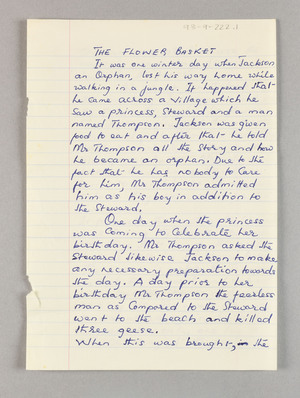 THE FLOWER BASKET
It was one winter day when Jackson
an Orphan, lost his way home while
walking in a jungle. It happened that
he came across a village which he
saw a princess, Steward and a man
named Thompson. Jackson was given
food to eat and after that he told
Mr Thompson all the story and how
he became an orphan. Due to the
fact that he has nobody to care
for him, Mr Thompson admitted
him as his boy in addition to
the Steward.
One day when the princess
was Coming to Celebrate her
birthday. Mr Thompson asked the
Steward likewise Jackson to make
any necessary preparation towards
the day. A day prior to her
birthday Mr Thompson the fearless
man as Compared to the Steward
went to the beach and killed
three geese.
When this was brought, in the